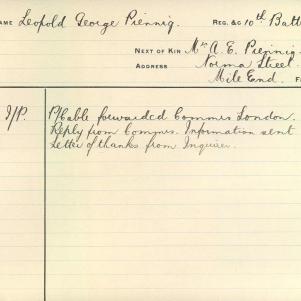 NAME Leopold George Piennig. REG. &C 10th Batt
NEXT OF KIN Mrs A. E. Piennig
ADDRESS Norma Street.
Mile End.
I/P. P/Cable forwarded Commrs London.
Reply from Commrs. Information sent
Letter of thanks from Inquirer.